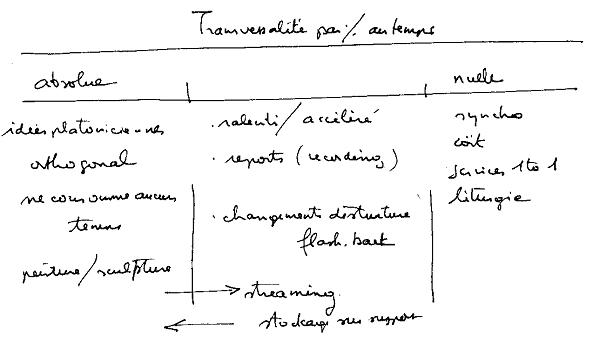 Transversalité par/% au temps
absolue
nulle
idées platoniciennes
orthogonal
ne consomme aucun
temps
peinture/sculpture
. ralenti/accéléré
. reports (recording)
. changements de structure
flash.back
streaming
stockage sur support
synchro
coït
services 1 to 1
liturgie